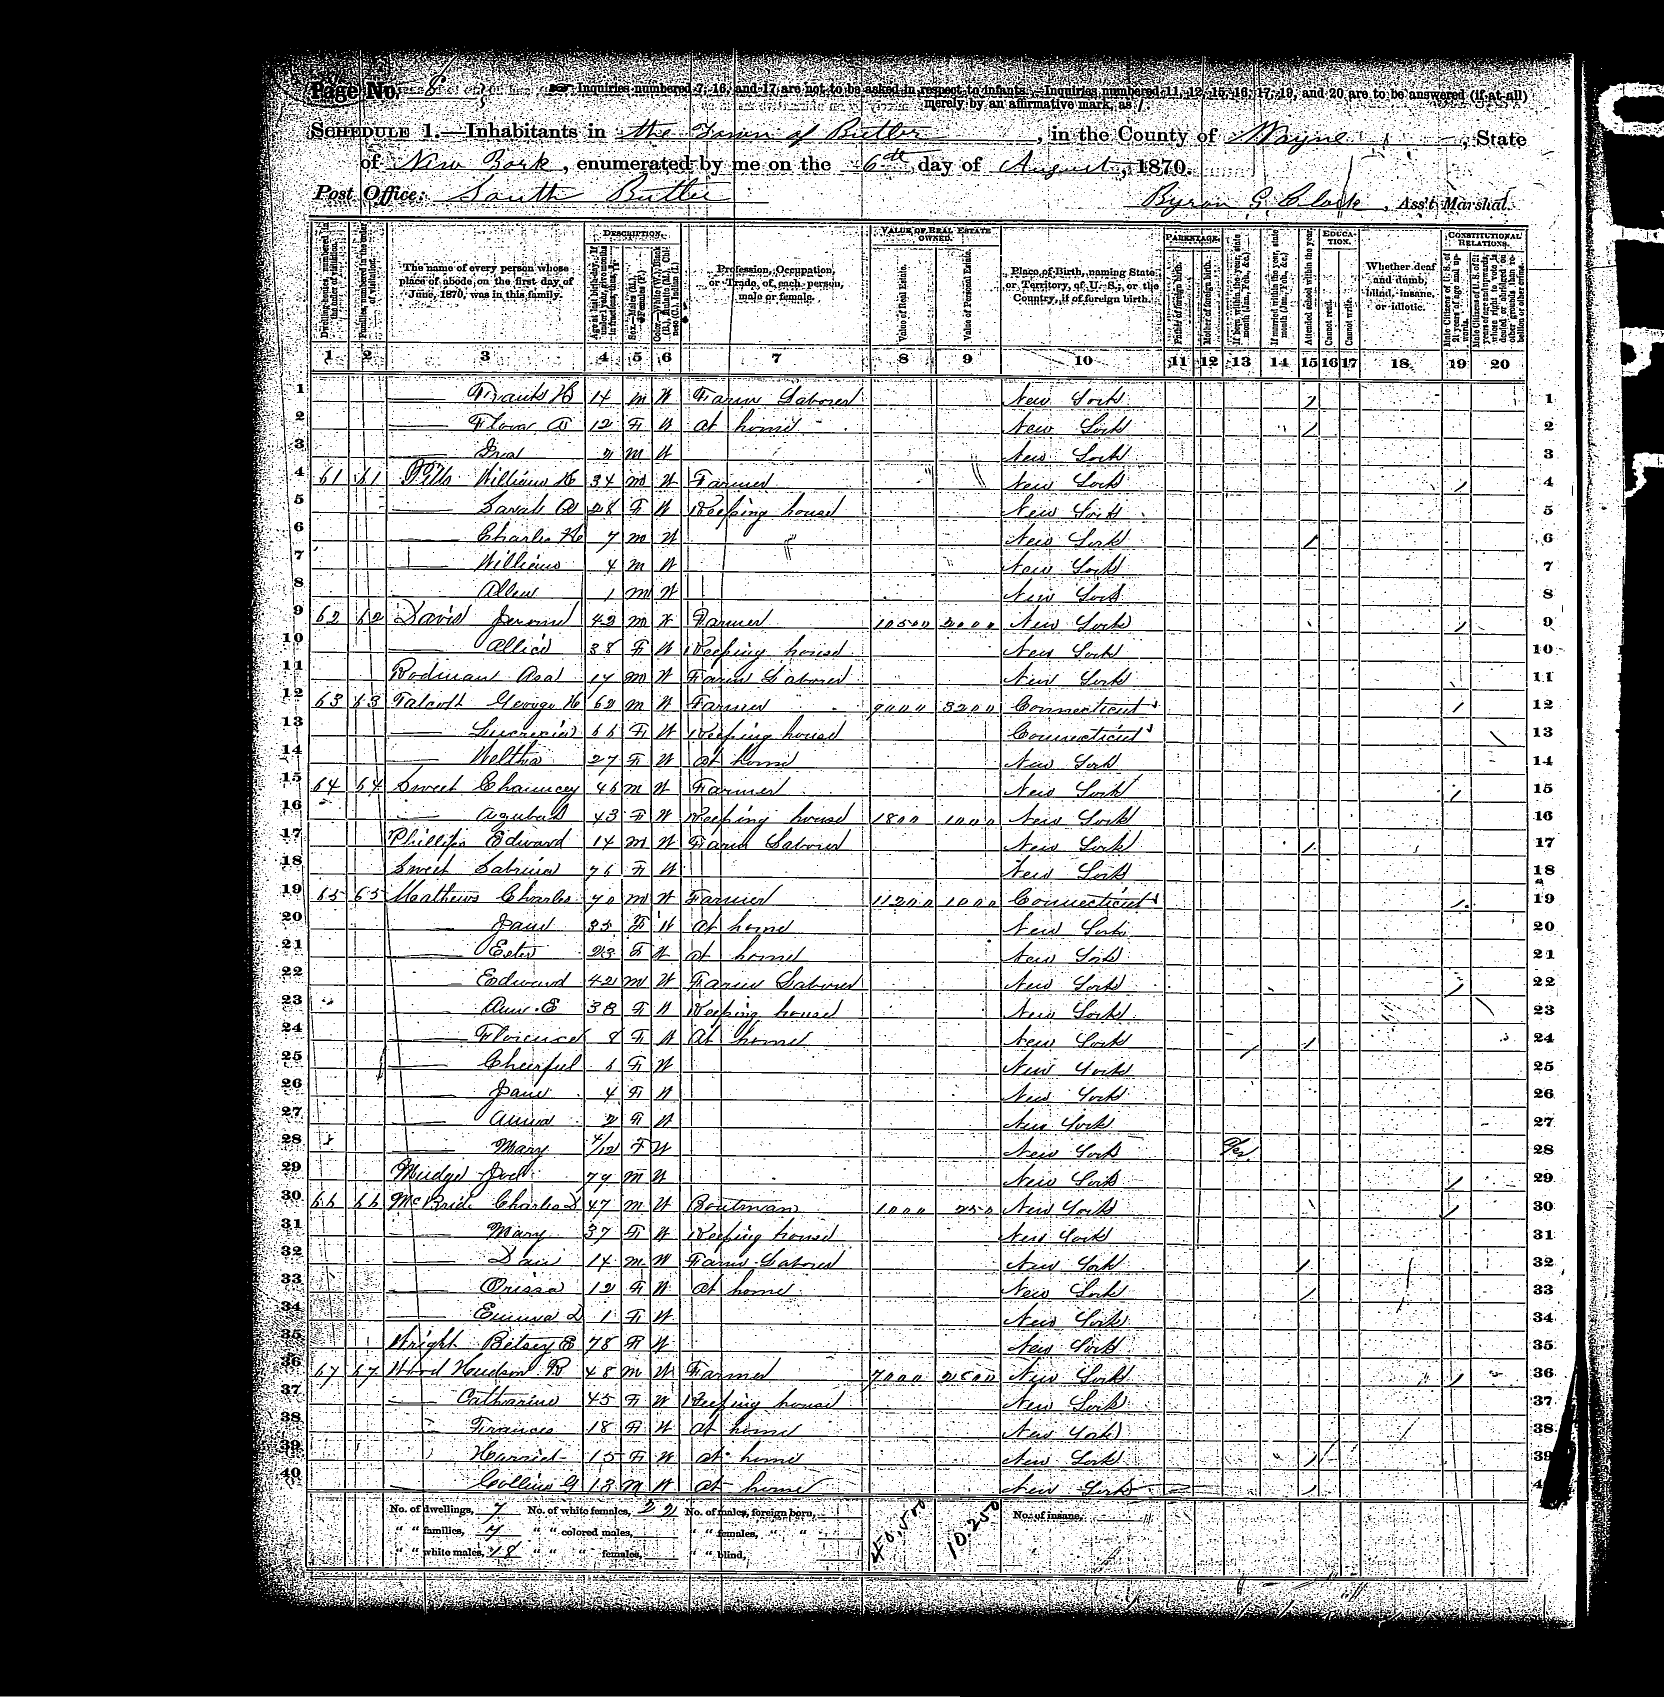 Page No. 8
Inquiries numbered 7, 16, and 17 are not to be asked in respect to infants. Inquiries numbered 11, 12, 15, 16, 17, 19, and 20 are to be answered (if at all)
merely by an affirmative mark, as /.
SCHEDULE 1.—Inhabitants in the Town of Butler, in the County of Wayne, State
of New York, enumerated by me on the 6th day of August, 1870.
Post Office: South Butler
Byron S. Clark, Ass't Marshal.
Dwelling-houses, numbered in the order of visitation.
Families, numbered in the order of visitation.
The name of every person whose place of abode, on the first day of June, 1870, was in this family.
DESCRIPTION.
Age at last birth-day. If under 1 year, give months in fractions, thus, 3/12
Sex.—Males (M.), Females (F.)
Color.—White (W.), Black (B.), Mulatto (M.), Chinese (C.), Indian (I.)
Profession, Occupation, or Trade, of each person, male or female.
VALUE OF REAL ESTATE OWNED.
Value of Real Estate.
Value of Personal Estate.
Place of Birth, naming State or Territory, of U. S.; or the Country, if of foreign birth.
PARENTAGE.
Father of foreign birth.
Mother of foreign birth.
If born within the year, state month (Jan., Feb., &c.)
If married within the year, state month (Jan., Feb., &c.)
Attended school within the year.
EDUCATION.
Cannot read.
Cannot write.
Whether deaf and dumb, blind, insane, or idiotic.
CONSTITUTIONAL RELATIONS.
Male Citizens of U. S. of 21 years of age and upwards.
Male Citizens of U. S. of 21 years of age and upwards, whose right to vote is denied or abridged on other grounds than rebellion or other crime.
1 2 3 4 5 6 7 8 9 10 11 12 13 14 15 16 17 18 19 20
1 —— Frank 14 M W Farm Laborer New York / 1
2 —— Flora A 12 F W At home New York / 2
3 —— Ira 2 M W New York 3
4 61 61 William H 34 M W Farmer New York / 4
5 —— Sarah A 28 F W Keeping house New York 5
6 —— Charles H 7 M W New York / 6
7 —— William 4 M W New York 7
8 —— Allen 1 M W New York 8
9 62 62 David Jerome 42 M W Farmer 10500 2000 New York / 9
10 —— Allice 38 F W Keeping house New York 10
11 Rodman Asa 17 M W Farm Laborer New York 11
12 63 63 Talcott George H 62 M W Farmer 9000 3200 Connecticut / 12
13 —— Lucrecia 66 F W Keeping house Connecticut 13
14 —— Welthia 27 F W At home New York 14
15 64 64 Sweet Chauncey 46 M W Farmer New York / 15
16 —— Azubah 43 F W Keeping house 1800 1000 New York 16
17 Phillips Edward 14 M W Farm Laborer New York / 17
18 Sweet Sabrina 76 F W New York 18
19 65 65 Mathews Charles 70 M W Farmer 11200 1000 Connecticut / 19
20 —— Jane 35 F W At home New York 20
21 —— Ester 23 F W At home New York 21
22 —— Edward 42 M W Farm Laborer New York / 22
23 —— Ann E 38 F W Keeping house New York 23
24 —— Florence 8 F W At home New York / 24
25 —— Cheerful 6 F W New York 25
26 —— Jane 4 F W New York 26
27 —— Anna 2 F W New York 27
28 —— Mary 4/12 F W New York 28
29 Mudge Joel 79 M W New York / 29
30 66 66 McBride Charles D 47 M W Boatman 1000 250 New York / 30
31 —— Mary 37 F W Keeping house New York 31
32 —— 14 M W Farm Laborer New York / 32
33 —— Orissa 12 F W At home New York / 33
34 —— Emma D 1 F W New York 34
35 Wright Betsey E 78 F W New York 35
36 67 67 Wood Hudson R 48 M W Farmer 7000 2500 New York / 36
37 —— Catharine 45 F W Keeping house New York 37
38 —— Frances 18 F W At home New York 38
39 Harriet 15 F W At home New York / 39
40 —— Collins G 13 M W At home New York / 4
No. of dwellings, 7 No. of white females, 22 No. of males, foreign born, 40,500 10,250 No. of insane,
" " families, 7 " " colored males, " " females, " "
" " white males, 18 " " " females, " " blind,